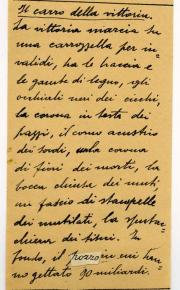 Il carro della vittoria.
La vittoria marcia su
una carrozzella per in-
validi, ha le braccia e
le gambe di legno, gli
occhiali neri dei ciechi,
la corona in testa dei
pazzi, il corno acustico
dei sordi, una corona
di fiori dei morti, la
bocca chiusa dei muti,
un fascio di stampelle
dei mutilati, la sputac-
chiera dei tisici. In
fondo, il pozzo in cui han-
no gettato 90 miliardi.